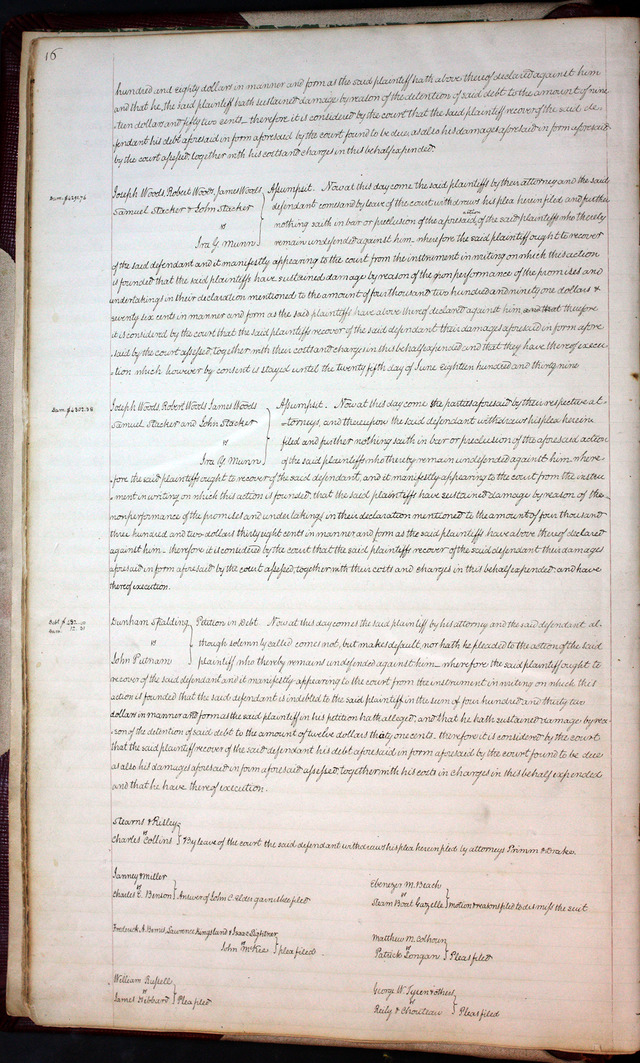 16
hundred and eighty dollars in manner and form as the said plaintiff hath above thereof declared against him
and that he, the said plaintiff hath sustained damage by reason of the detention of said debt to the amount of nine
teen dollars and fifty two cents therefore it is considered by the court that the said plaintiff recover of the said de-
fendant his debt aforesaid in form aforesaid by the court found to be due, as also his damages aforesaid in form aforesaid
by the court assessed together with his costs and charges in this behalf expended.
Joseph Woods, Robert Woods, James Woods Assumpsit. Now at this day come the said plaintiffs by their attorney and the said
Samuel Stacker & John Stacker defendant comes and by leave of the court withdraws his plea herein filed and further
nothing saith in bar or preclusion of the aforesaid action of the said plaintiffs who thereby
vs
Ira G. Munn remain undefended against him wherefore the said plaintiff ought to recover
of the said defendant and it manifestly appearing to the court from the instrument in writing on which this action
is founded that the said plaintiffs have sustained damage by reason of the nonperformance of the promises and
undertakings in their declaration mentioned to the amount of four thousand two hundred and ninety one dollars &
seventy six cents in manner and form as the said plaintiffs have above thereof declared against him and that therefore
it is considered by the court that the said plaintiffs recover of the said defendant their damages aforesaid in form afore
said by the court assessed, together with their costs and charges in this behalf expended and that they have thereof execu-
tion which however by consent is stayed until the twenty fifth day of June eighteen hundred and thirty nine
Dam. $4302.38
Joseph Woods, Robert Woods James Woods Assumpsit. Now at this day come the parties aforesaid by their respective at-
Samuel Stacker and John Stacker torneys, and thereupon the said defendant withdraws his plea herein
vs filed and further nothing saith in bar or preclusion of the aforesaid action
Ira G. Munn of the said plaintiffs who thereby remain undefended against him where
fore the said plaintiff ought to recover of the said defendant, and it manifestly appearing to the court from the instru-
ment in writing on which this action is founded, that the said plaintiffs have sustained damage by reason of the
nonperformance of the promises and undertakings in their declaration mentioned to the amount of four thousand
three hundred and two dollars thirty eight cents in manner and form as the said plaintiffs have above thereof declared
against him therefore it is considered by the court that the said plaintiffs recover of the said defendant their damages
aforesaid in form aforesaid by the court assessed, together with their costs and charges in this behalf expended and have
thereof execution.
Dunham Spalding Petition in Debt. Now at this day comes the said plaintiff by his attorney and the said defendant al-
vs though solemnly called comes not, but makes default, nor hath he pleaded to the action of the said
John Putnam plaintiff who thereby remains undefended against him wherefore the said plaintiff ought to
recover of the said defendant and it manifestly appearing to the court from the instrument in writing on which this
action is founded that the said defendant is indebted to the said plaintiff in the sum of four hundred and thirty two
dollars in manner and form as the said plaintiff in his petition hath alleged, and that he hath sustained damage by rea-
son of the detention of said debt to the amount of twelve dollars thirty one cents. therefore it is considered by the court
that the said plaintiff recover of the said defendant his debt aforesaid in form aforesaid by the court found to be due
as also his damages aforesaid in form aforesaid assessed, together with his costs in charges in this behalf expended
and that he have thereof execution.
Stearns & Risley
vs
Charles Collins By leave of the court the said defendant withdraws his plea herein pled by attorneys Primm & Drake.
Janney & Miller
vs
Charles E. Benson Answer of John C. Elder garnishee filed
Ebenezer M. Beach
vs
Steam Boat Gazelle Motion & reasons filed to dismiss the suit
Frederick A. Bemis, Lawrence Kingsland & Isaac Lightner
vs
John McKee plea filed.
Matthew M. Colhoun
vs
Patrick Longan Pleas filed
William Russell
vs
James Hebbard Plea pled
George W. Tyson & others
vs
Reily & Chouteau Pleas filed